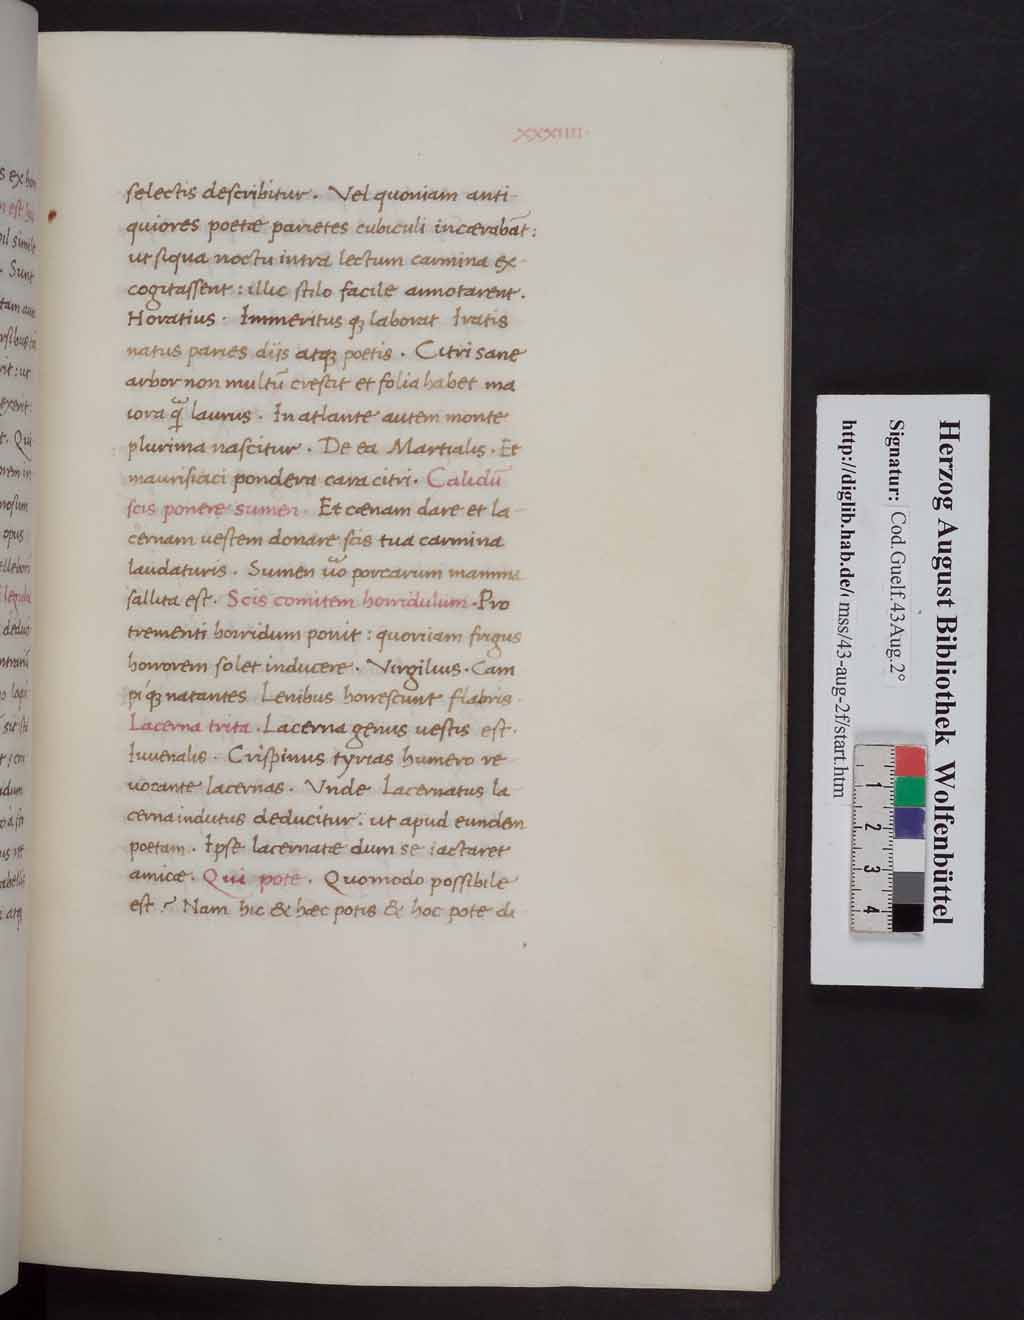 XXXIIII·
selectis describitur. Vel quoniam anti-
quiores poetæ parietes cubiculi incærabāt:
ut siqua noctu intra lectum carmina ex-
cogitassent: illic stilo facile annotarent.
Horatius. Immeritus qꝫ laborat Iratis
natus paries diis atqꝫ poetis. Citri sane
arbor non multū crescit et folia habet ma
iora q̃ laurus. In atlante autem monte
plurima nascitur. De ea Martialis. Et
maurisiaci pondera cara citri. Calidū
scis ponere sumen. Et cænam dare et la-
cernam uestem donare scis tua carmina
laudaturis. Sumen ūo porcarum mamma
sallita est. Scis comitem horridulum. Pro
trementi horridum ponit: quoniam frigus
horrorem solet inducere. Virgilius. Cam
piqꝫ natantes Lenibus horrescunt flabris.
Lacerna trita. Lacerna genus uestis est.
Iuuenalis. Crispinus tyrias humero re
uocante lacernas. Vnde Lacernatus la
cerna indutus deducitur: ut apud eunden
poetam. Ipse lacernatæ dum se iactaret
amicæ. Qui pote. Quomodo possibile
est? Nam hic & hæc potis & hoc pote di
s ex
est
il simile
. Sunt
tam
it: ut
exent:
t. Qui
orem in
opus
dedu
Herzog August Bibliothek Wolfenbüttel
Signatur: Cod.Guelf.43 Aug.2°
http://diglib.hab.de/mss/43-aug-2f/start.htm
1
2
3
4